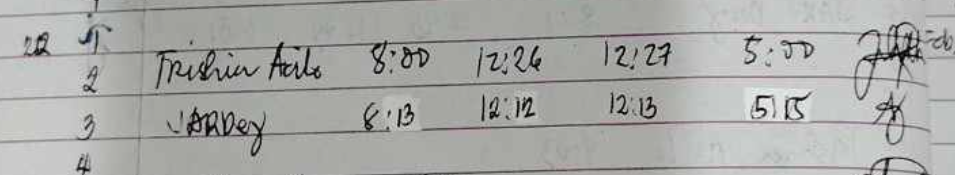 22 1
2 Trishia 8:00 12:26 12:27 5:00
3 JARDey 8:13 12:12 12:13 5:15
4